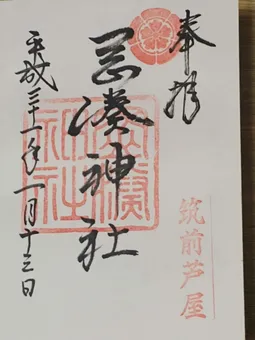 奉拝
岡湊神社
筑前芦屋
平成三十一年一月十三日
岡湊
神社